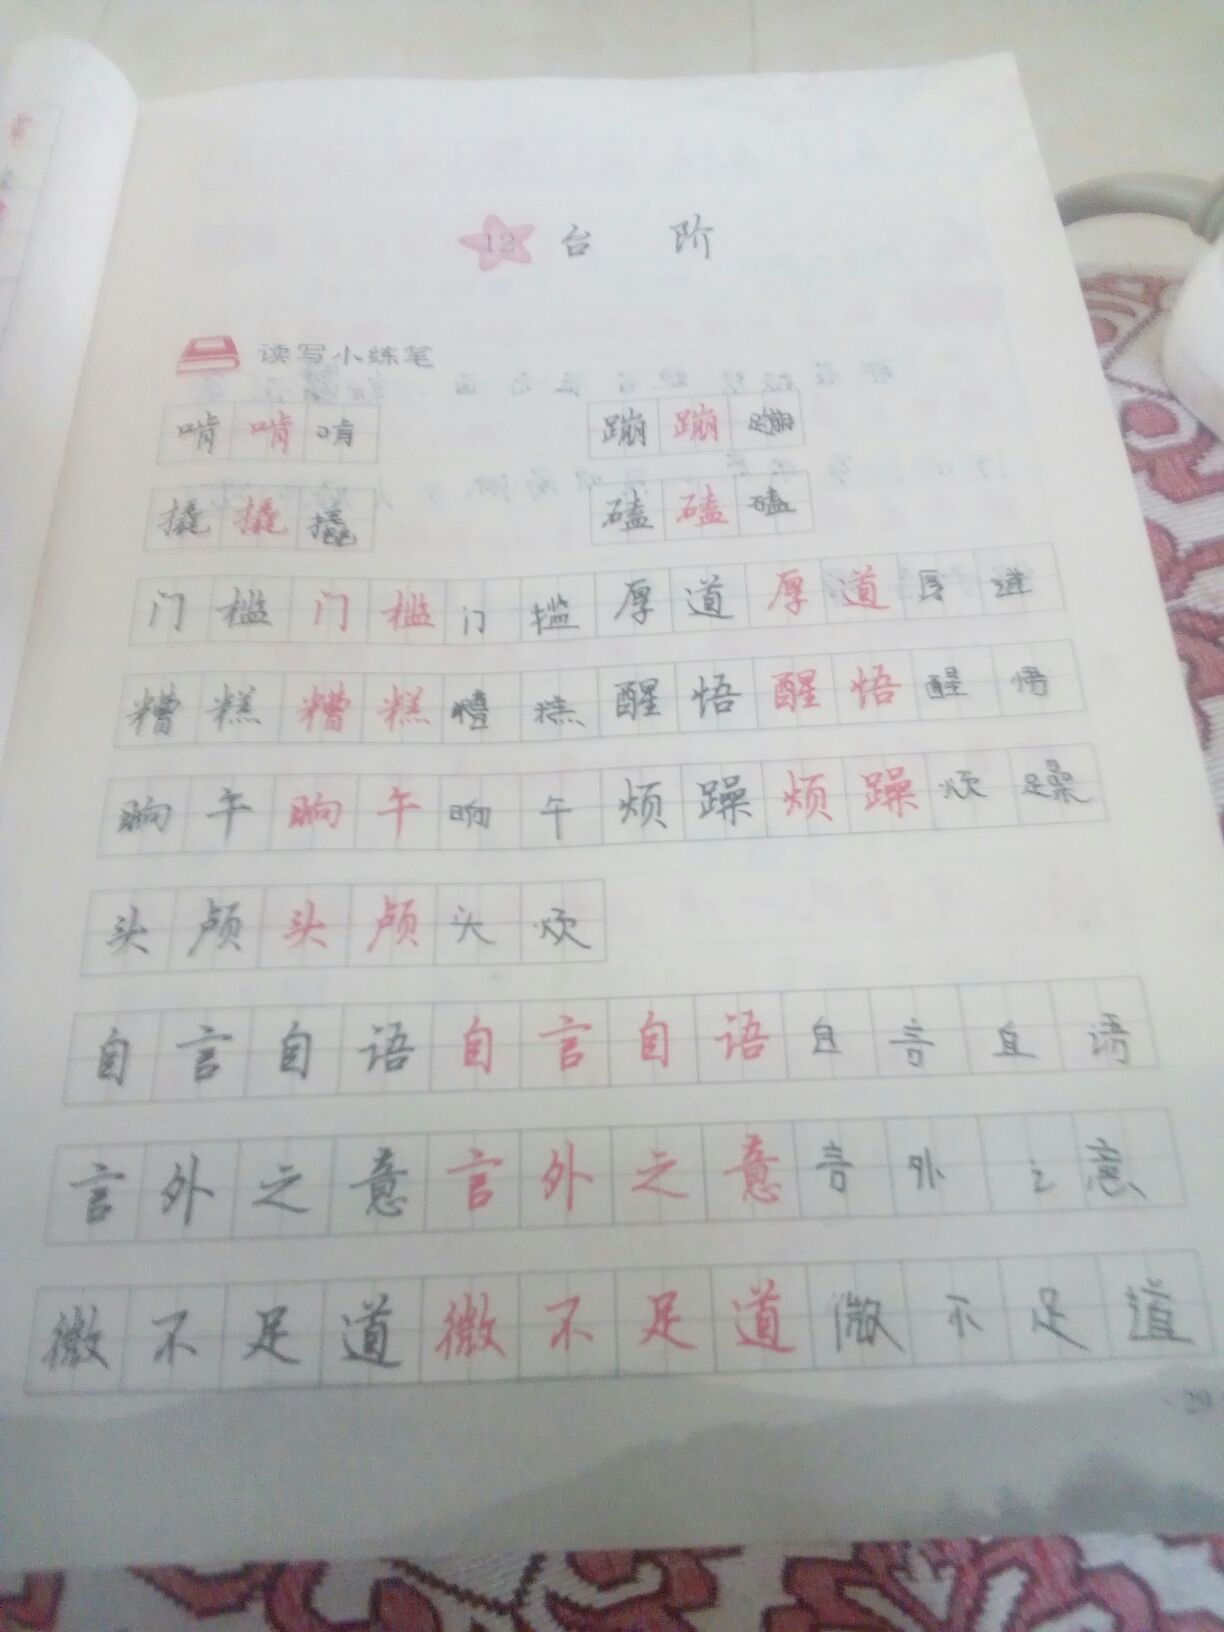 12 台 阶
读写小练笔
啃 啃 啃 蹦 蹦 蹦
撬 撬 撬 磕 磕 磕
门 槛 门 槛 门 槛 厚 道 厚 道 厚 道
糟 糕 糟 糕 糟 糕 醒 悟 醒 悟 醒 悟
晌 午 晌 午 晌 午 烦 躁 烦 躁 烦 躁
头 颅 头 颅 头
自 言 自 语 自 言 自 语 自 言 自 语
言 外 之 意 言 外 之 意 言 外 之 意
微 不 足 道 微 不 足 道 微 不 足 道